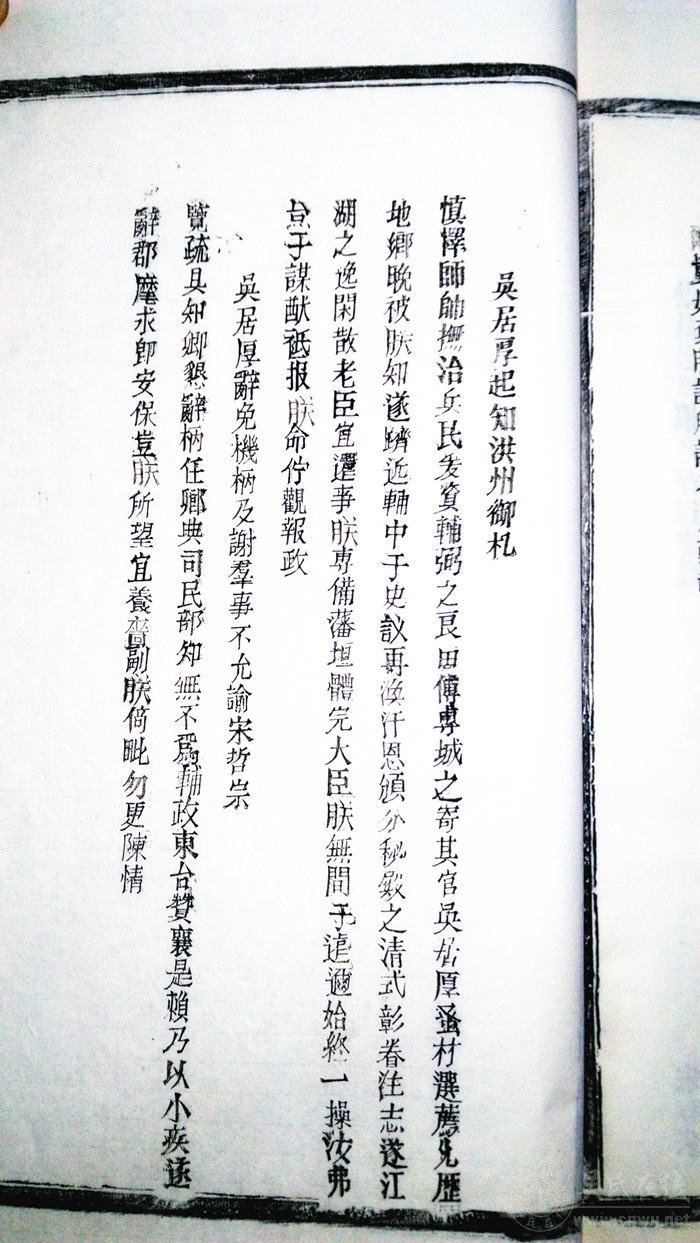 吳居厚起知洪州御札
慎擇師帥撫治兵民爰資輔弼之良田傅專城之寄其官吳居厚蚤材選薦凫歷
地鄉晚被朕知遂躋近輔中于史議再渙汗恩頒分秘殿之清式彰眷注志遂江
湖之逸閑散老臣宜還事朕專備藩垣體完大臣朕無間于遠邇始終一操汝弗
怠于謀猷祗报朕命佇觀報政
吳居厚辭免機柄及謝羣事不允諭宋哲宗
覽疏具知卿懇辭柄任鄉典司民部知無不爲輔政東台贊襄是賴乃以小疾遂
辭郡麾求即安保豈朕所望宜養
副朕倚毗勿更陳情
www.cnwu.net